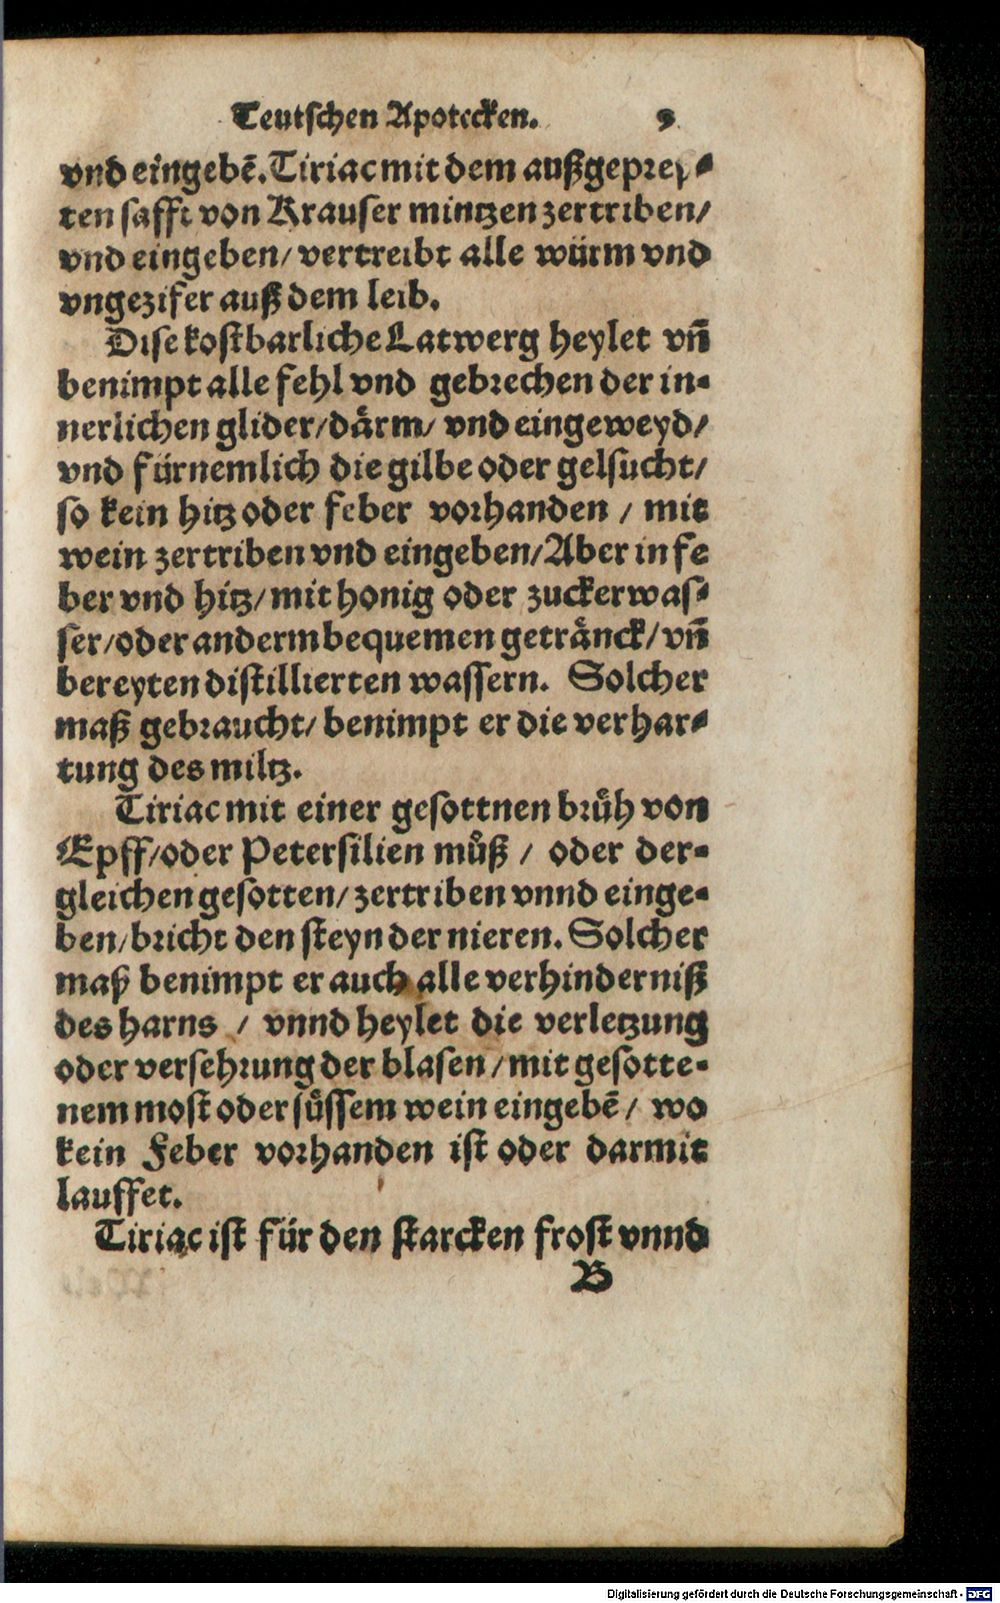 Teutschen Apotecken. 9
vnd eingebẽ. Tiriac mit dem außgeprey⸗
ten safft von Krauser mintzen zertriben/
vnd eingeben/ vertreibt alle würm vnd
vngezifer auß dem leib.
Dise kostbarliche Latwerg heylet vñ
benimpt alle fehl vnd gebrechen der in⸗
nerlichen glider/ dårm/ vnd eingeweyd/
vnd fürnemlich die gilbe oder gelsucht/
so kein hitz oder feber vorhanden / mit
wein zertriben vnd eingeben/ Aber in fe
ber vnd hitz/ mit honig oder zuckerwas⸗
ser/ oder anderm bequemen getränck/ vñ
bereyten distillierten wassern. Solcher
maß gebraucht/ benimpt er die verhar⸗
tung des miltz.
Tiriac mit einer gesottnen brüh von
Epff/ oder Petersilien můß / oder der⸗
gleichen gesotten/ zertriben vnnd einge⸗
ben/ bricht den steyn der nieren. Solcher
maß benimpt er auch alle verhinderniß
des harns / vnnd heylet die verletzung
oder versehrung der blasen/ mit gesotte⸗
nem most oder süssem wein eingebẽ/ wo
kein Feber vorhanden ist oder darmit
lauffet.
Tiriac ist für den starcken frost vnnd
B
Digitalisierung gefördert durch die Deutsche Forschungsgemeinschaft - DFG